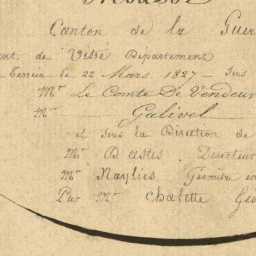 Canton de la Guer
nt de Vitré Département
Terminé le 22 Mars 1827 – Sous
Mr Le Comte De Vendeur
Mr Galivel
et sous la Direction de
Mr Bastés, Directeur
Mr Naylies Géomètre en
Par Mr Chalette Géo